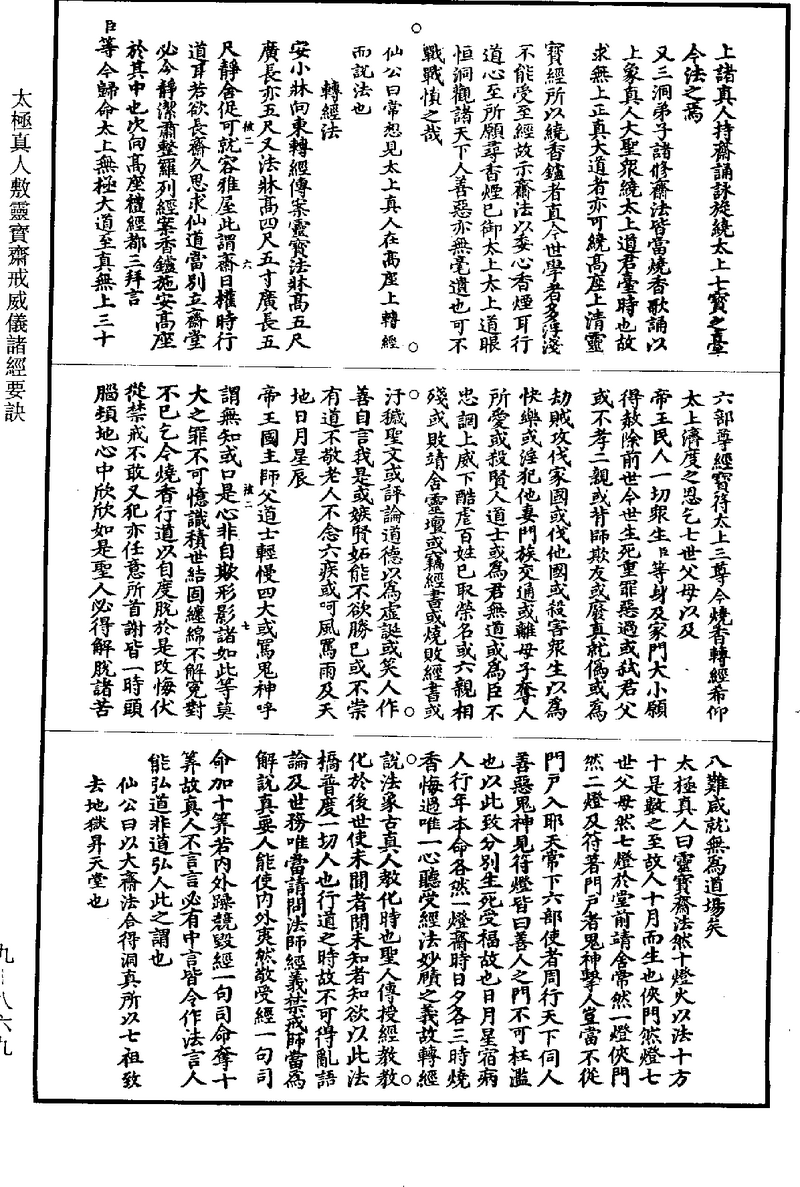 上諸真人持齋誦詠旋繞太上七寶之臺
今法之焉
又三洞弟子諸修齋法皆當燒香歌誦以
上象真人大聖眾繞太上道君臺時也故
求無上正真大道者亦可繞高座上清靈
寶經所以繞香鑪者直今世學者多浮淺
不能受至經故示齋法以委心香煙耳行
道心至所願尋香煙已御太上太上道眼
恒洞觀諸天下人善惡亦無毫遺也可不
戰戰慎之哉
仙公曰常想見太上真人在高座上轉經
而說法也
轉經法
安小牀向東轉經傳案靈寶法牀高五尺
廣長亦五尺又法牀高四尺五寸廣長五
尺靜舍促可就容雅屋此謂齋日權時行
道耳若欲長齋久思求仙道當別立齋堂
必令靜潔肅整羅列經案香鑪施安高座
於其中也次向高座禮經都三拜言
臣等今歸命太上無極大道至真無上三十
六部尊經寶符太上三尊今燒香轉經希仰
太上濟度之恩乞七世父母以及
帝王民人一切眾生臣等身及家門大小願
得赦除前世今世生死重罪惡過或弒君父
或不孝二親或背師欺友或廢真就偽或為
劫賊攻伐家國或伐他國或殺害眾生以為
快樂或淫犯他妻門族交通或離母子奪人
所愛或殺賢人道士或為君無道或為臣不
忠調上威下酷虐百姓已取榮名或六親相
殘或敗靖舍靈壇或竊經書或燒敗經書或
汙穢聖文或評論道德以為虛誕或笑人作
善自言我是或嫉賢妬能不欲勝已或不崇
有道不敬老人不念六疾或呵風罵雨及天
地日月星辰
帝王國主師父道士輕慢四大或罵鬼神呼
謂無知或口是心非自欺形影諸如此等莫
大之罪不可憶識積世結固纏綿不解冤對
不已乞今燒香行道以自度脫於是改悔伏
從禁戒不敢又犯亦任意所首謝皆一時頭
腦頓地心中欣欣如是聖人必得解脫諸苦
八難咸就無為道場矣
太極真人曰靈寶齋法然十燈火以法十方
十是數之至故人十月而生也俠門然燈七
世父母然七燈於堂前靖舍常然一燈俠門
然二燈及符著門戶者鬼神擊人豈當不從
門戶入耶天常下六部使者周行天下伺人
善惡鬼神見符燈皆曰善人之門不可枉濫
也以此致分別生死受福故也日月星宿病
人行年本命各然一燈齋時日夕各三時燒
香悔過唯一心聽受經法妙賾之義故轉經
說法象古真人教化時也聖人傳授經教教
化於後世使未聞者聞未知者知欲以此法
橋普度一切人也行道之時故不可得亂語
論及世務唯當請問法師經義禁戒師當為
解說真要人能使內外夷然敬受經一句司
命加十算若內外躁競毀經一句司命奪十
算故真人不言言必有中言皆令作法言人
能弘道非道弘人此之謂也
仙公曰以大齋法合得洞真所以七祖致
去地獄昇天堂也
太極真人敷靈寶齋戒威儀諸經要訣
九－八六九